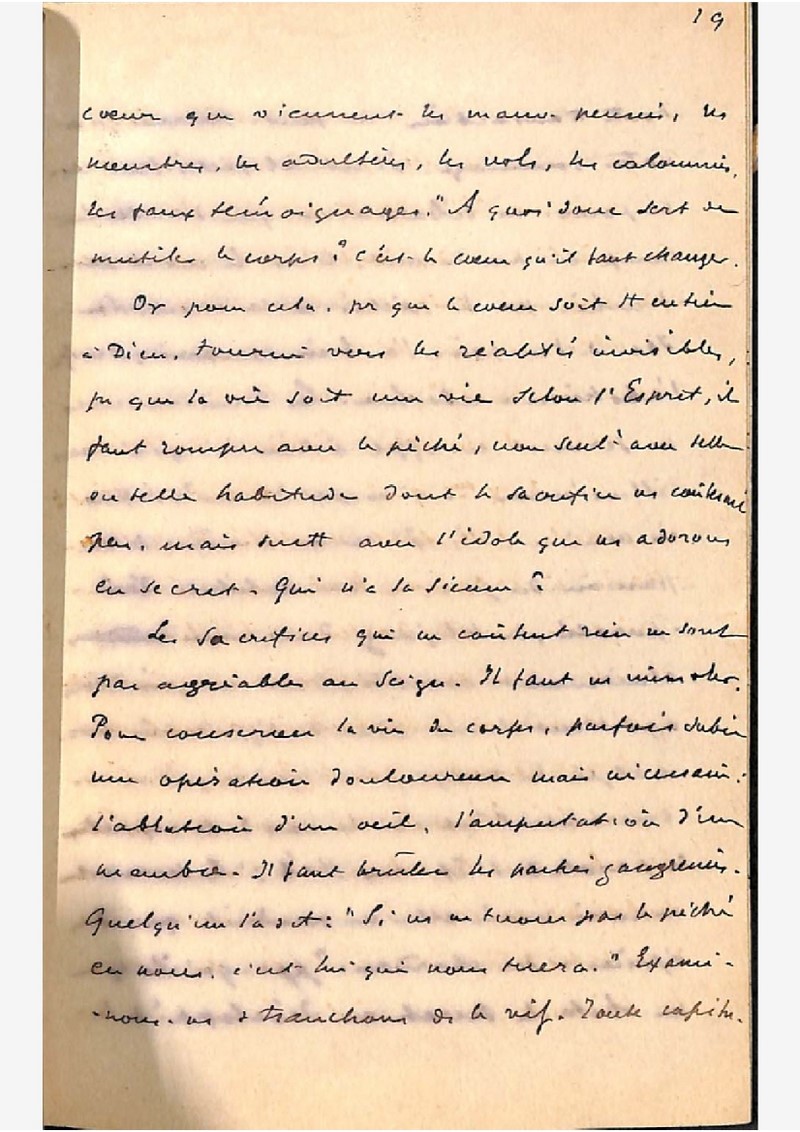 19
coeur que viennent les mauv. pensées, les
meurtres, les adultères, les vols, les calomnies,
les faux témoignages." A quoi donc sert de
mutiler le corps ? c'est le coeur qu'il faut changer.
Or pour cela, pr que le coeur soit tt entier
à Dieu, tourné vers les réalités invisibles,
pr que la vie soit une vie selon l'Esprit, il
faut rompre avec le péché, non seult avec telle
ou telle habitude dont le sacrifice ns coûterait
peu, mais surtt avec l'idole que ns adorons
en secret. Qui n'a la sienne ?
Les sacrifices qui ne coûtent rien ne sont
pas agréables au Seigr. Il faut ns immoler.
Pour conserver la vie du corps, parfois subir
une opération douloureuse mais nécessaire :
l'ablation d'un oeil, l'amputation d'un
membre. Il faut brûler les parties gangrenées.
Quelqu'un l'a dit : "Si ns ne tuons pas le péché
en nous, c'est lui qui nous tuera." Exami-
-nons-ns & tranchons ds le vif. Toute capitu-